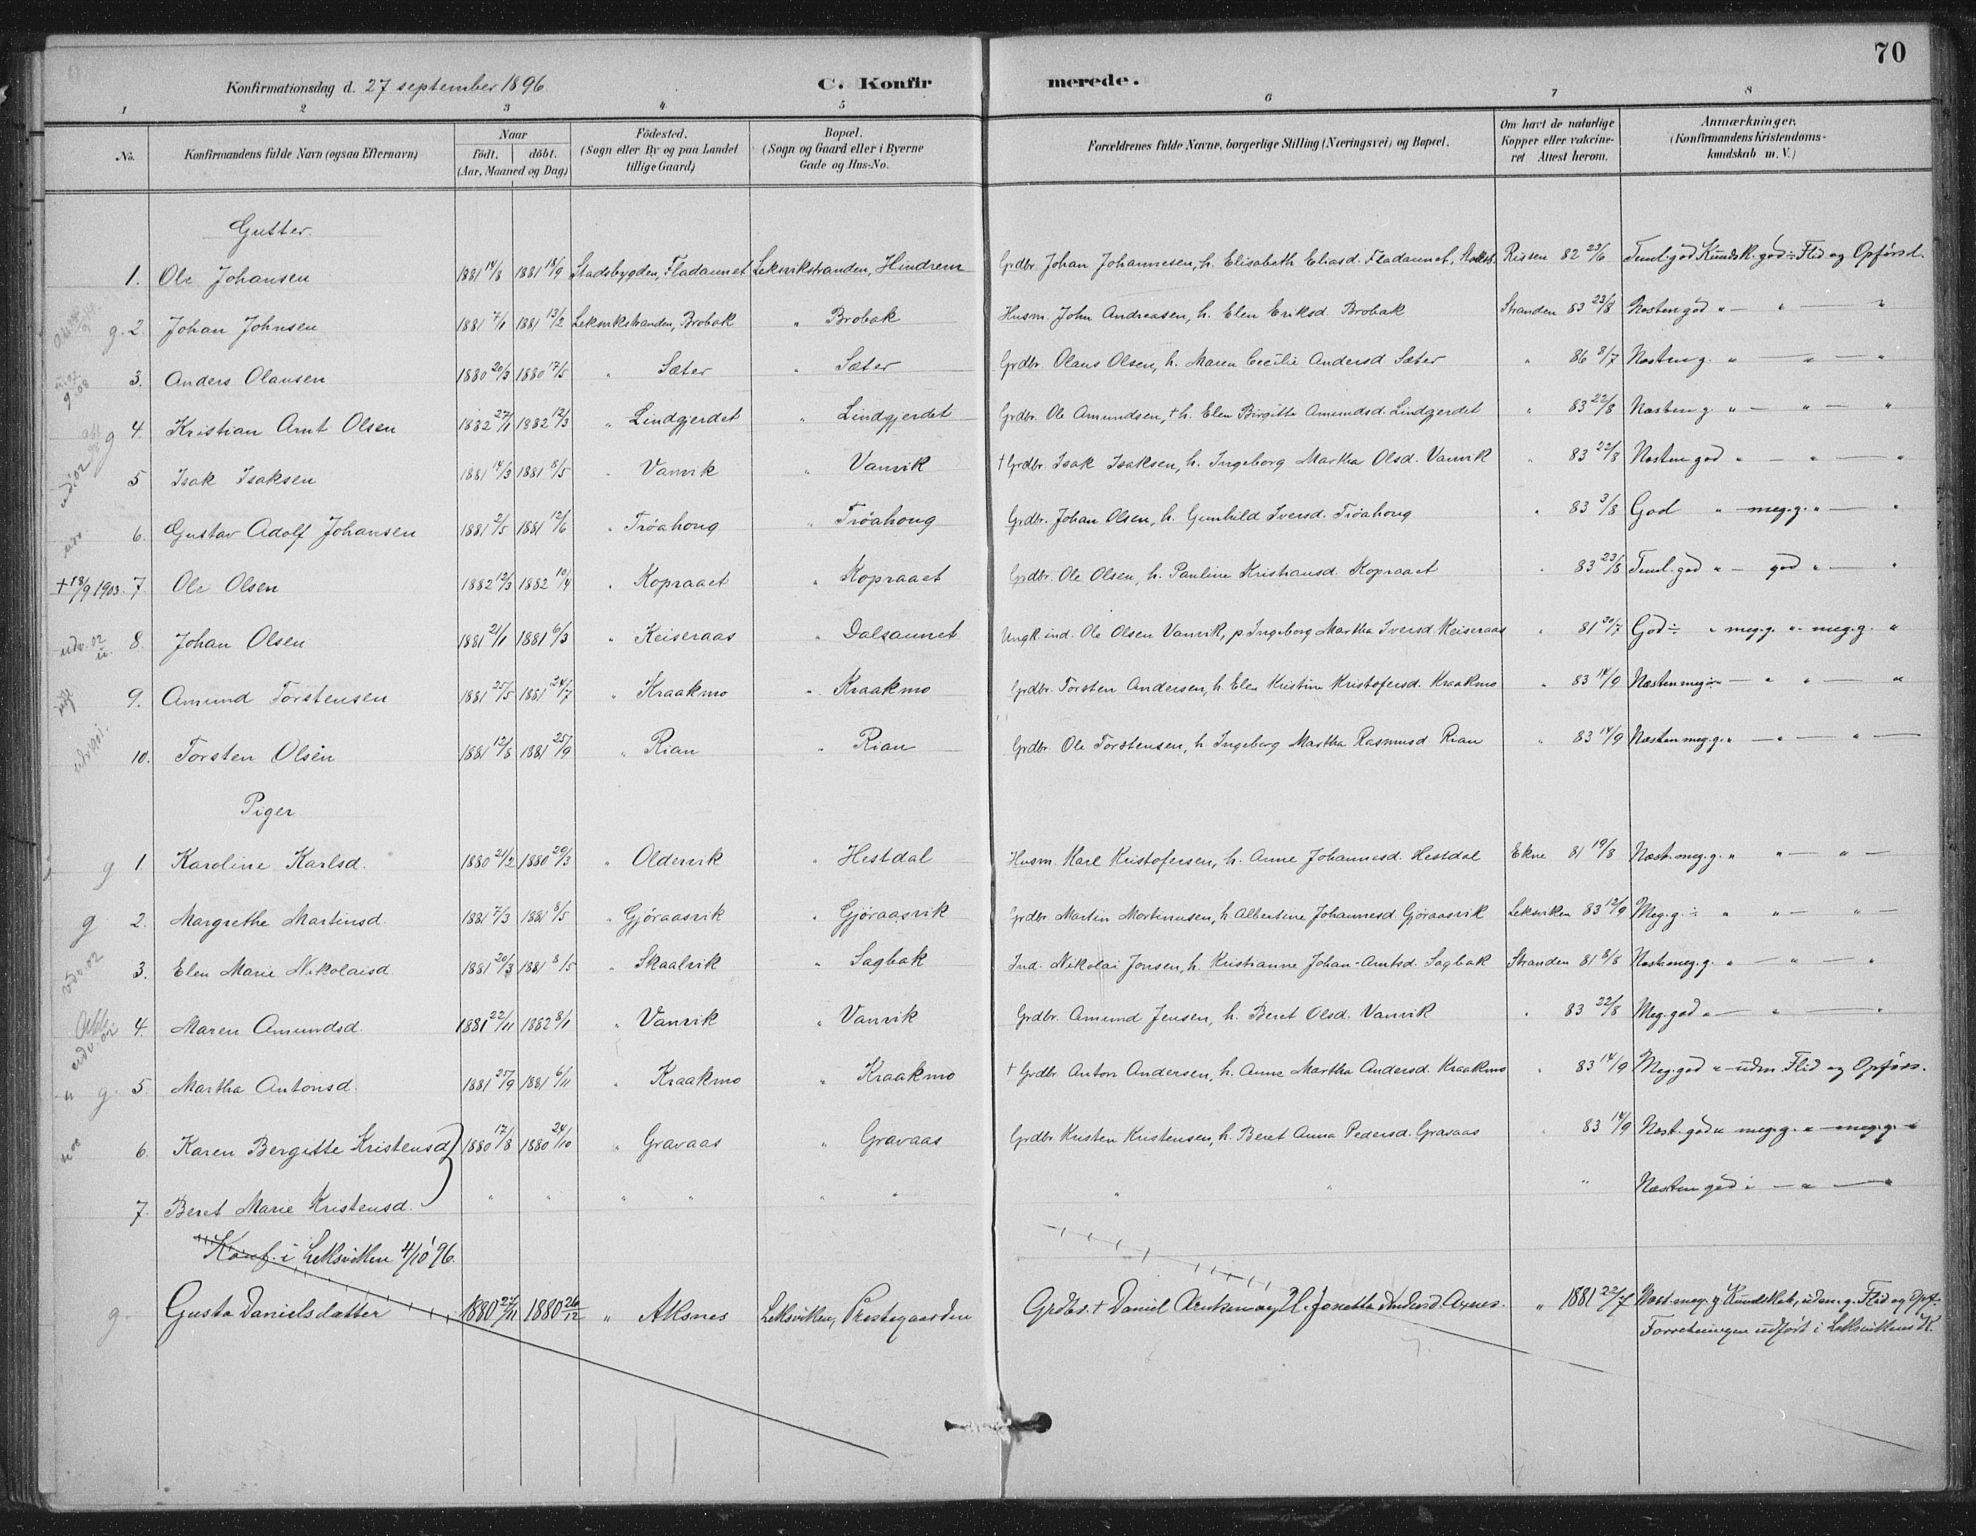 70
Konfirmationsdag d. 27 september 1896. C. Konfirmerede.
1 2 3 4 5 6 7 8
No. Konfirmandens fulde Navn (ogsaa Efternavn) Naar født. døbt. (Aar, Maaned og Dag) Fødested. (Sogn eller By og paa Landet tillige Gaard) Bopæl. (Sogn og Gaard eller i Byerne Gade og Hus-No. Forældrenes fulde Navne, borgerlige Stilling (Næringsvei) og Bopæl. Om havt de naturlige Kopper eller vakcineret Attest herom. Anmærkninger. (Konfirmandens Kristendomskundskab m. V.)
Gutter.
1. Ole Johansen 1881 14/8 1881 18/9 Stadsbygden, Fladaunet Leksvikstranden, Hindrem Grdbr. Johan Johannesen, h. Elisabeth Eliasd. Fladaunet, Rissen 82 23/6 Teml. god Kundsk. god ÷ Flid og Opførsel.
g. 2 Johan Johnsen 1881 7/1 1881 13/2 Leksvikstranden, Brobak " Brobak Husm. John Andreasen, h. Elen Eriksd. Brobak Stranden 83 23/8 Næsten god " — " — "
3. Anders Olausen 1880 20/3 1880 17/5 " Sæter " Sæter Grdbr. Olaus Olsen, h. Maren Cecilie Andersd. Sæter " 86 8/7 Næsten g. " " — "
g 4. Kristian Arnt Olsen 1882 27/1 1882 12/3 " Lindgjerdet " Lindgjerdet Grdbr. Ole Amundsen, † h. Elen Birgitte Amundsd. Lindgjerdet " 83 22/8 Næsten g. " — " — "
5 Isak Isaksen 1881 14/3 1881 8/5 " Vanvik " Vanvik † Grdbr. Isak Isaksen, h. Ingeborg Martha Olsd. Vanvik " 83 22/8 Næsten god " — " — "
6. Gustav Adolf Johansen 1881 2/5 1881 12/6 " Trøahoug " Trøahoug Grdbr. Johan Olsen, h. Gunhild Iversd. Trøahoug " 83 3/8 God " meg. g. " — "
† 18/9 1903. 7. Ole Olsen 1882 12/3 1882 10/4 " Kopraaet " Kopraaet Grdbr. Ole Olsen, h. Pauline Kristiansd. Kopraaet " 83 23/8 Teml. god " — god " — "
udv. 02 8. Johan Olsen 1881 21/1 1881 6/3 " Keiseraas " Dalsaunet Ungk. ind. Ole Olsen Vanvik, p. Ingeborg Martha Iversd. Keiseraas " 81 30/7 God ÷ " meg. g. " meg. g. "
9. Amund Torstensen 1881 25/5 1881 24/7 " Kraakmo " Kraakmo Grdbr. Torsten Andersen, h. Elen Kristine Kristofersd. Kraakmo " 83 14/9 Næsten meg. " — " " — "
udv 1901. 10. Torsten Olsen 1881 12/8 1881 25/9 " Rian " Rian Grdbr. Ole Torstensen, h. Ingeborg Martha Rasmusd. Rian " 83 14/9 Næsten meg. g. " — " — " —
Piger
g 1. Karoline Karlsd. 1880 21/2 1880 29/3 " Oldervik " Hestdal Husm. Karl Kristofersen, h. Anne Johannesd. Hestdal Ekne 81 19/8 Næst. meg. g. " " — " —
g 2. Margrethe Martinsd. 1881 7/3 1881 8/5 " Gjøraasvik " Gjøraasvik Grdbr. Martin Martinusen, h. Albertine Johannesd. Gjøraasvik Leksviken 83 12/9 Meg. g. ÷ " " — " —
udv. 02 3. Elen Marie Nikolaisd. 1881 20/3 1881 8/5 " Skaalvik " Sagbak Ind. Nikolai Jonsen, h. Kristianne Johan-Arntsd. Sagbak Stranden 81 8/8 Næst. meg. g. " — " — "
4. Maren Amundsd. 1881 22/11 1882 8/1 " Vanvik " Vanvik Grdbr. Amund Jensen, h. Beret Olsd. Vanvik " 83 22/8 Meg. god " — " — "
g. 5. Martha Antonsd. 1881 25/9 1881 6/11 " Kraakmo " Kraakmo † Grdbr. Anton Andersen, h. Anne Martha Andersd. Kraakmo " 83 14/9 Meg. god " – udm. Flid og Opførs.
6. Karen Bergitte Kristensd. 1880 17/8 1880 24/10 " Gravaas " Gravaas Grdbr. Kristen Kristensen, h. Beret Anna Pedersd. Gravaas " 83 14/9 Næst. god " meg. g. " — meg. g. "
7. Beret Marie Kristensd. " " " " " " " " " Næsten god ÷ — " — "
Konf. i Leksviken 4/10 '96.
g. Gusta Danielsdatter 1880 24/11 1880 26/12 " Aksnes Leksviken, Prestegaarden Grdbr. † Daniel og H. Jonetta Andersd. Axnes. " 1881 22/7 Næst. meg. g. Kundskab, udm. g. Flid og Opf.
Forretningen udført i Leksvikens K.